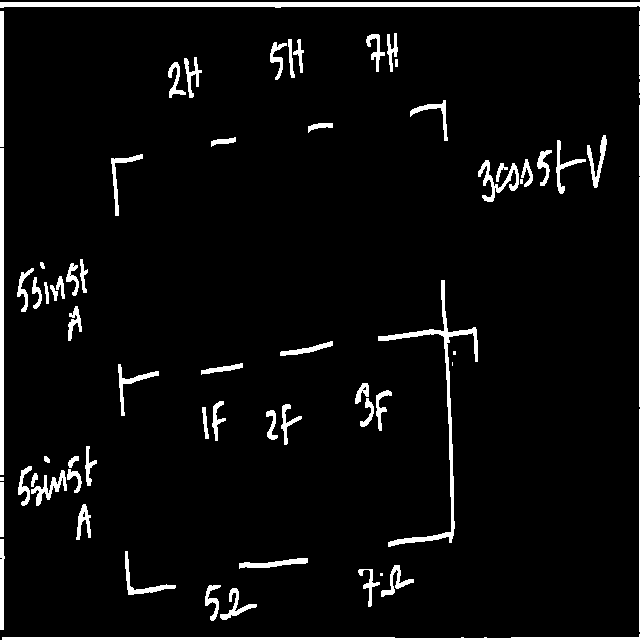 2H 5H 7H
3cos5t V
5sin5t
A
1F 2F 3F
5sin5t
A
5Ω 7Ω